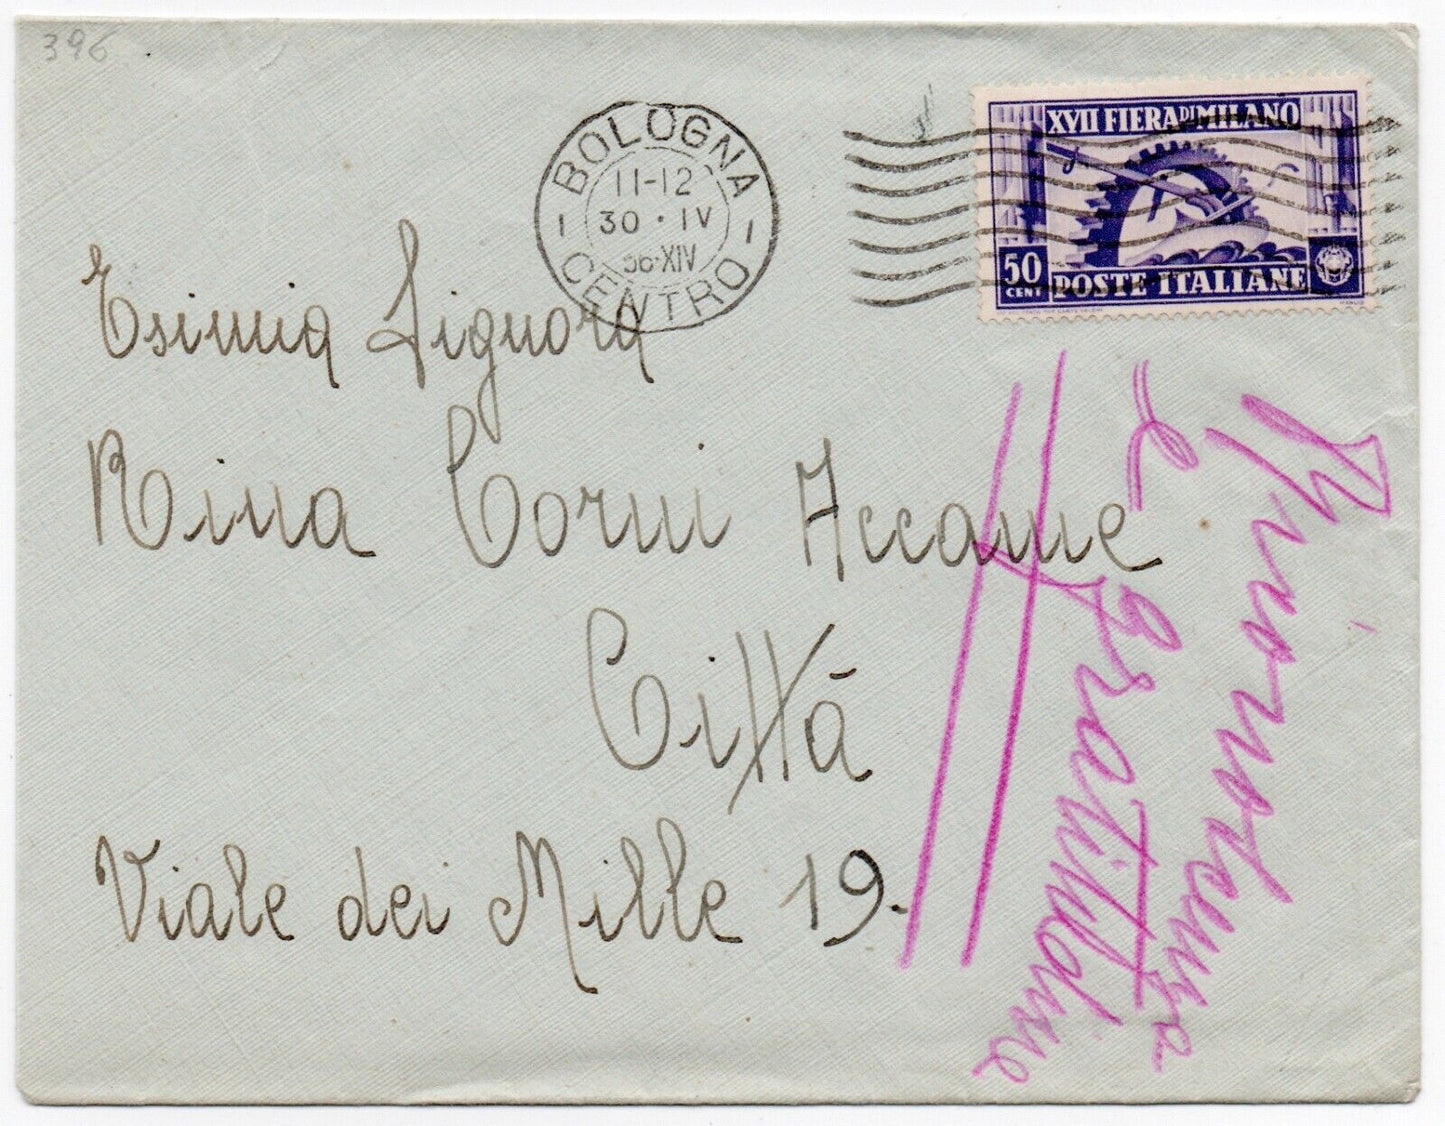 396
BOLOGNA
11-12
30 · IV
36·XIV
CENTRO
XVII FIERA DI MILANO
50
CENT
POSTE ITALIANE
Esimia Signora
Rina Corni Accame
Città
Viale dei Mille 19.
Riconoscenza
e
gratitudine